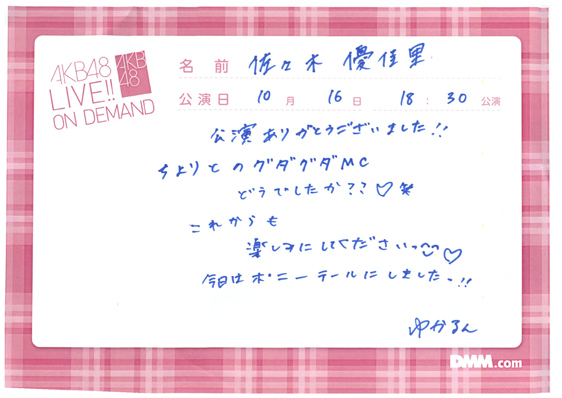 AKB48
LIVE!!
ON DEMAND
AKB
48
名前 佐々木 優佳里
公演日 10月 16日 18:30 公演
公演ありがとうございました!!
ちよりとのグダグダMC
どうでしたか??♡
これからも
楽しみにしてくださいっ♡
今日はポニーテールにしましたー!!
ゆかるん
DMM.com